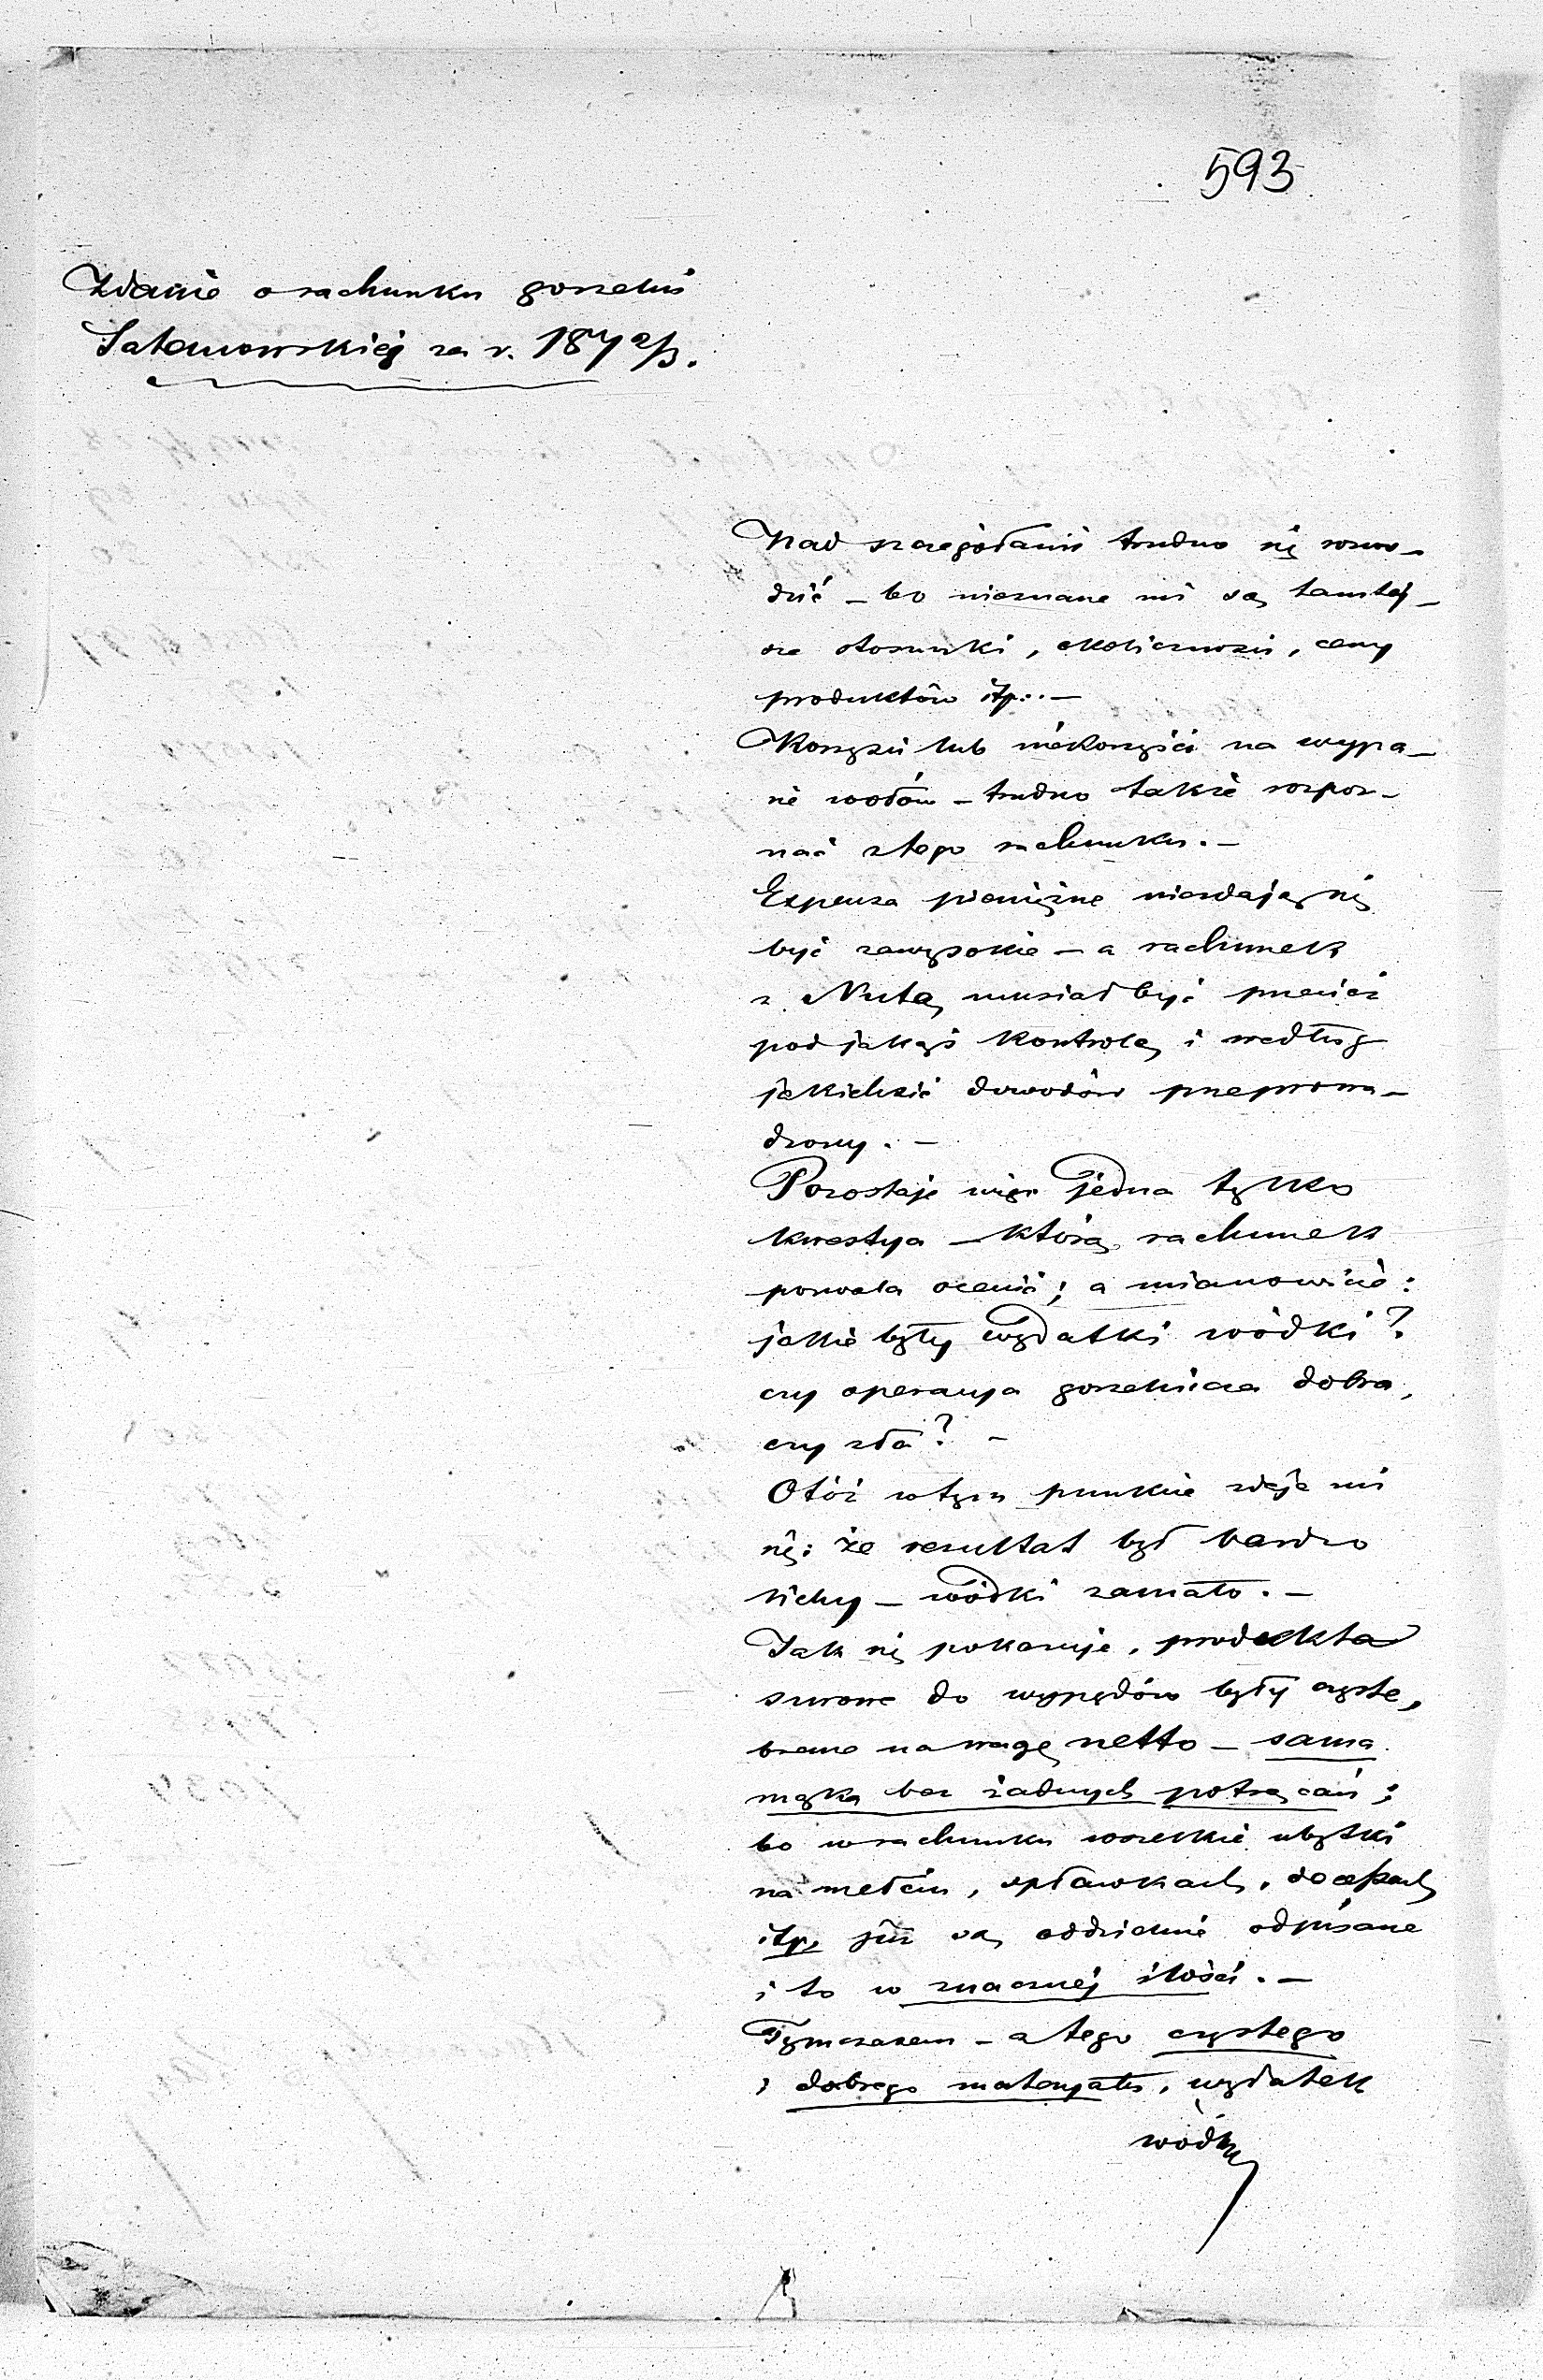 593
Zdanie o rachunku gorzelni
za r. 1872/3.
Nad szczegółami trudno się rozwo-
dzić – bo nieznane mi są tamtej-
sze stosunki, okoliczności, ceny
produktów itp.. –
Korzyści lub niekorzyści na wypa-
sie wołów – trudno także rozpoz-
nać z tego rachunku. –
Expensa pieniężne niezdają się
być zawysokie – a rachunek
z Nutą musiał być przecież
pod jakąś kontrolą i według
jakichsiś dowodów przeprowa-
dzony. –
Pozostaje więc jedna tylko
kwestya – którą rachunek
pozwala ocenić; a mianowicie:
jakie były wydatki wódki?
czy operacya gorzelnicza dobra,
czy zła? –
Otóż w tym punkcie zdaje mi
się: że rezultat był bardzo
lichy – wódki zamało. –
Jak się pokazuje, produkta
surowe do wypędów były czyste,
brane na wagę netto – sama
mąka bez żadnych potrącań;
bo w rachunku wszelkie ubytki
na mełciu, spławkach,
itp. już są oddzielnie odpisane
i to w znacznej ilości. –
Tymczasem – z tego czystego
i dobrego materyału, wydatek
wódki